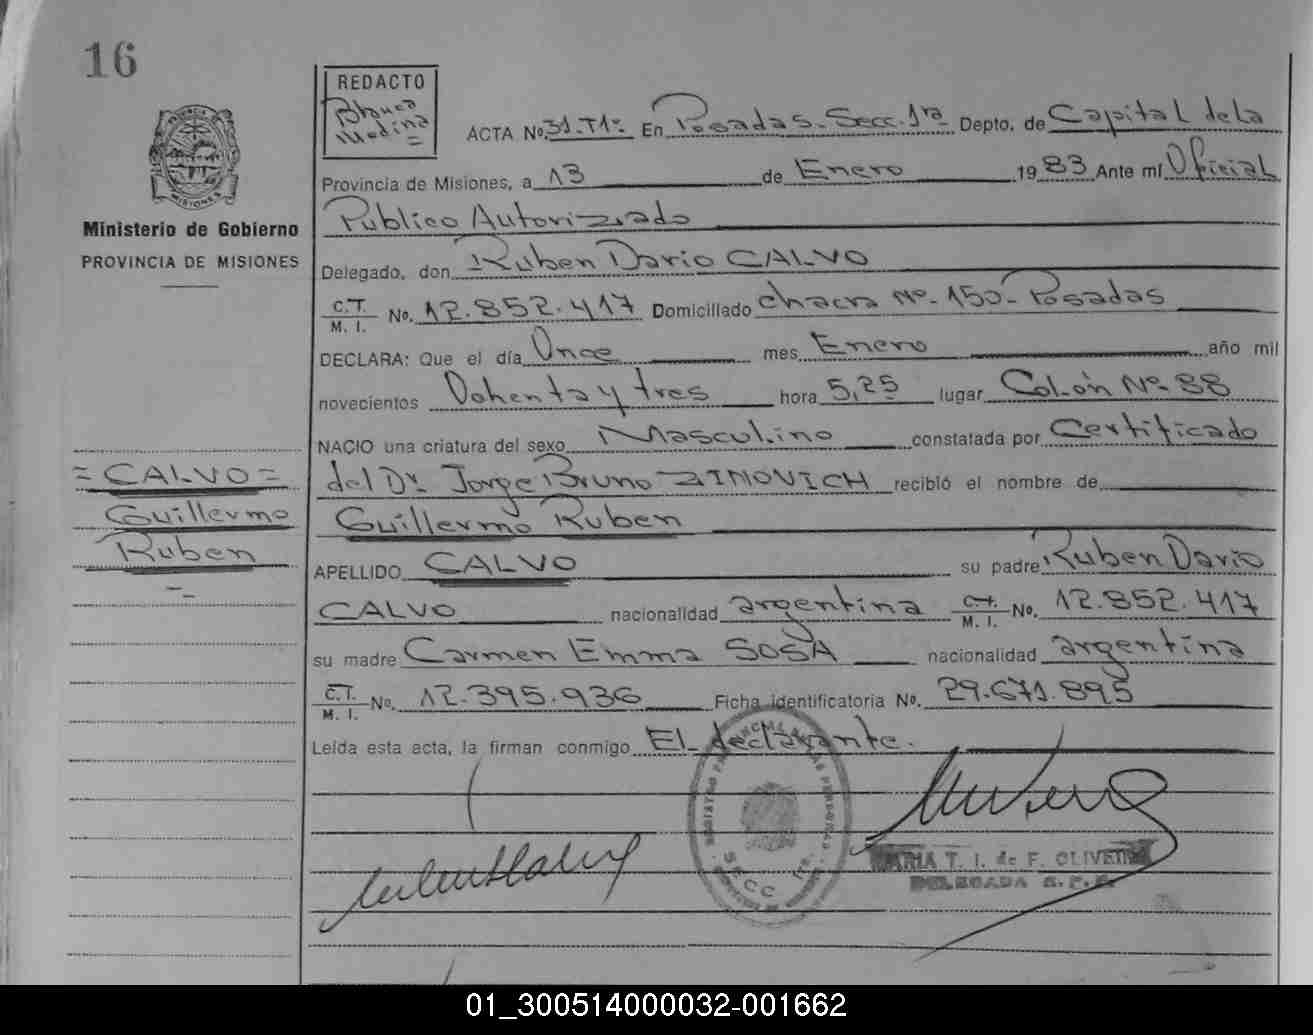 16
REDACTO
Blanca
Medina
PROVINCIA DE
MISIONES
Ministerio de Gobierno
PROVINCIA DE MISIONES
ACTA No. 31.T1º En Posadas-Secc. 1ra Depto. de Capital de la
Provincia de Misiones, a 13 de Enero 1983 Ante mí Oficial
Publico Autorizado
Delegado, don Ruben Dario CALVO
C.T. M. I. No. 12.852.417 Domiciliado chacra Nº-150-Posadas
DECLARA: Que el día Once mes Enero año mil
novecientos Ochenta y tres hora 5,25 lugar Colón Nº 88
NACIO una criatura del sexo Masculino constatada por Certificado
del Dr. Jorge Bruno ZINOVICH recibió el nombre de
Guillermo Ruben
APELLIDO CALVO su padre Ruben Dario
CALVO nacionalidad argentina C.T. M. I. No. 12.852.417
su madre Carmen Emma SOSA nacionalidad argentina
C.T. M. I. No. 12.395.936 Ficha identificatoria No. 29.671.895
Leída esta acta, la firman conmigo El declarante.
=CALVO=
Guillermo
Ruben
SECC 1ra.
MARIA T. I. de F. OLIVEIRA
DELEGADA R.P.P.
01_300514000032-001662